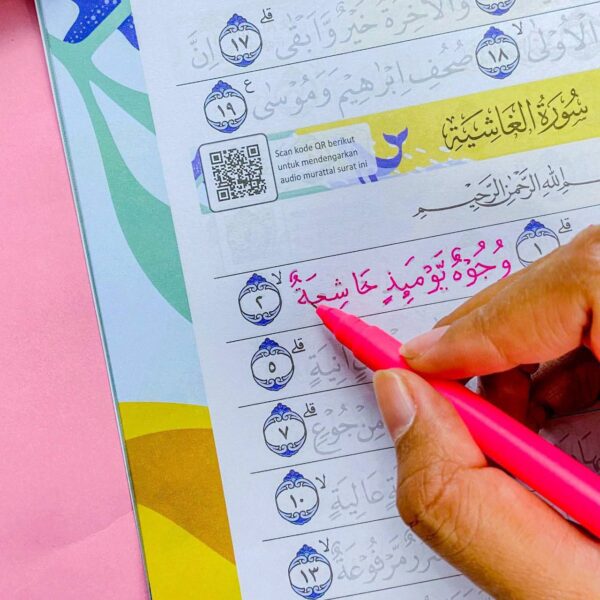 وَالْآخِرَةُ خَيْرٌ وَّأَبْقَىٰ ١٧ إِنَّ
الْأُولَىٰ ١٨ صُحُفِ إِبْرٰهِيمَ وَمُوسَىٰ ١٩
سُوْرَةُ الغَاشِيَة
Scan kode QR berikut
untuk mendengarkan
audio murattal surat ini
اللهِ الرَّحْمٰنِ الرَّحِيْمِ
١ وُجُوْهٌ يَّوْمَىِٕذٍ خَاشِعَةٌ ٢
اٰنِيَةٍ ٥
مِنْ جُوْعٍ ٧
عَالِيَةٍ ١٠
مَّرْفُوْعَةٌ ١٣